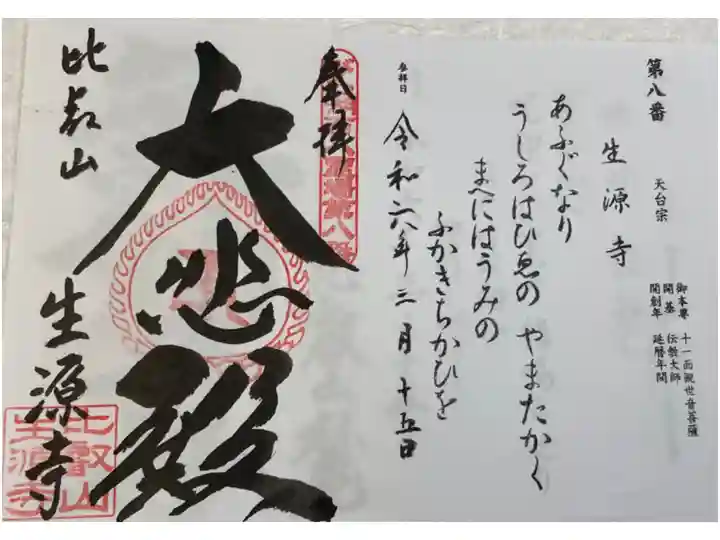 第八番
天台宗
御本尊 十一面観世音菩薩
開基 伝教大師
開創年 延暦年間
生源寺
あふぐなり
うしろはひゑの やまたかく
まへにはうみの
ふかきちかひを
参拝日 令和六年三月十五日
奉拝
大悲殿
比叡山
生源寺
比叡山
生源寺